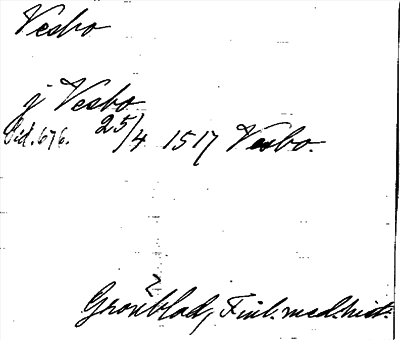 Vesbo
j Vesbo
Od. 676. 25/4 1517 Vesbo.
2
Grönblad, Finl. med. hist.